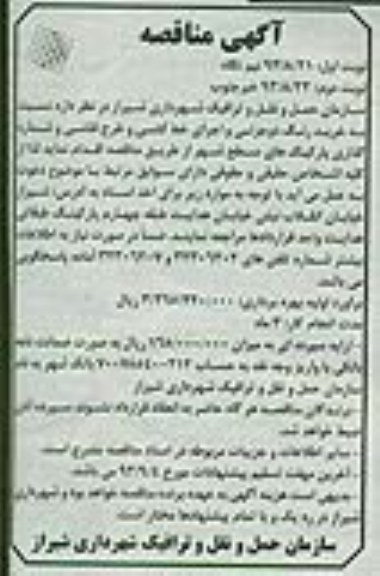 آگهی مناقصه
نوبت اول: ۹۳/۸/۲۱ نیم نگاه
نوبت دوم: ۹۳/۸/۲۲ خبر جنوب
سازمان حمل و نقل و ترافیک شهرداری شیراز در نظر دارد نسبت
به خرید رنگ دوجزئی و اجرای خط کشی و طرح نقشی و شماره
گذاری پارکینگ های سطح شهر از طریق مناقصه اقدام نماید لذا از
کلیه اشخاص حقیقی و حقوقی دارای سوابق مرتبط با موضوع دعوت
به عمل می آید با توجه به موارد زیر برای اخذ اسناد به آدرس: شیراز
خیابان انقلاب نبش خیابان هدایت طبقه چهارم پارکینگ طبقاتی
هدایت واحد قراردادها مراجعه نمایند. ضمناً در صورت نیاز به اطلاعات
بیشتر شماره تلفن های و آماده پاسخگویی
می باشد.
برآورد اولیه بهره برداری: ریال
مدت انجام کار: ۳ ماه
- ارایه سپرده ای به میزان ریال به صورت ضمانت نامه
بانکی یا واریز وجه نقد به حساب بانک شهر به نام
سازمان حمل و نقل و ترافیک شهرداری شیراز
- برندگان مناقصه هر گاه حاضر به انعقاد قرارداد نشوند سپرده آنان
ضبط خواهد شد.
- سایر اطلاعات و جزییات مربوطه در اسناد مناقصه مندرج است.
- آخرین مهلت تسلیم پیشنهادات مورخ ۹۳/۹/۴ می باشد.
- بدیهی است هزینه آگهی به عهده برنده مناقصه خواهد بود و شهرداری
شیراز در رد یک و یا تمام پیشنهادها مختار است.
سازمان حمل و نقل و ترافیک شهرداری شیراز